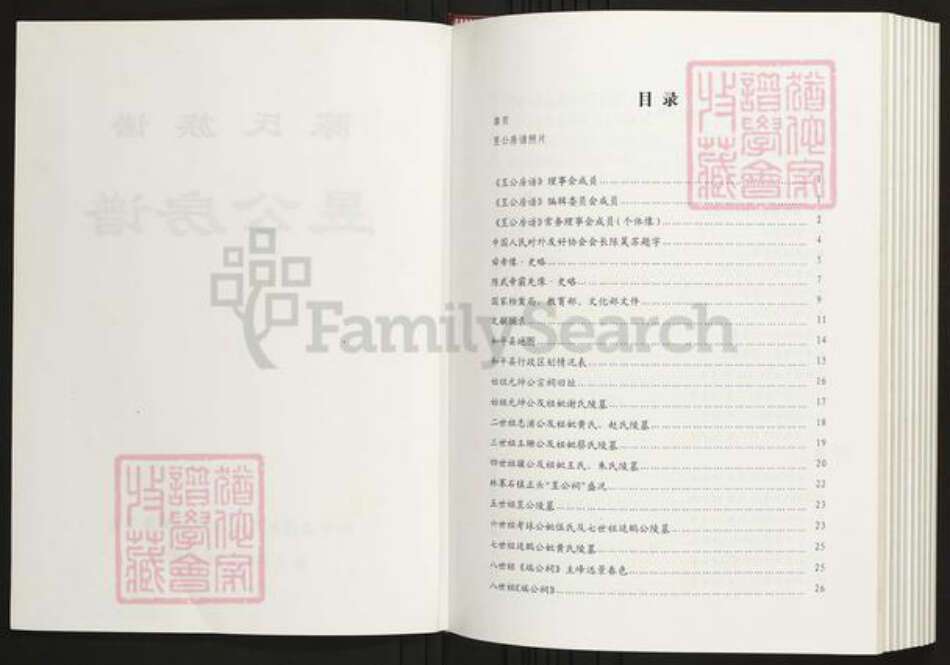 陈氏族谱
昱公房谱
目录
扉页
昱公房谱照片
《昱公房谱》理事会成员 1
《昱公房谱》编辑委员会成员 1
《昱公房谱》常务理事会成员(个体像) 2
中国人民对外友好协会会长陈昊苏题字 4
舜帝像·史略 5
陈武帝霸先像·史略 7
国家档案局、教育部、文化部文件 9
文献摘录 11
和平县地图 14
和平县行政区划情况表 15
始祖元坤公宗祠旧址 16
始祖元坤公及祖妣谢氏陵墓 17
二世祖志浦公及祖妣黄氏、赵氏陵墓 18
三世祖玉珊公及祖妣蔡氏陵墓 19
四世祖公及祖妣王氏、朱氏陵墓 20
林寨石镇正头“昱公祠”盛况 22
五世祖昱公陵墓 23
六世祖考球公妣伍氏及七世祖廷鹏公陵墓 23
七世祖廷鹏公妣黄氏陵墓 25
八世祖《瑞公祠》主峰远景春色 25
八世祖《瑞公祠》 26
FamilySearch
犹他家谱学会收藏
犹他家谱学会收藏